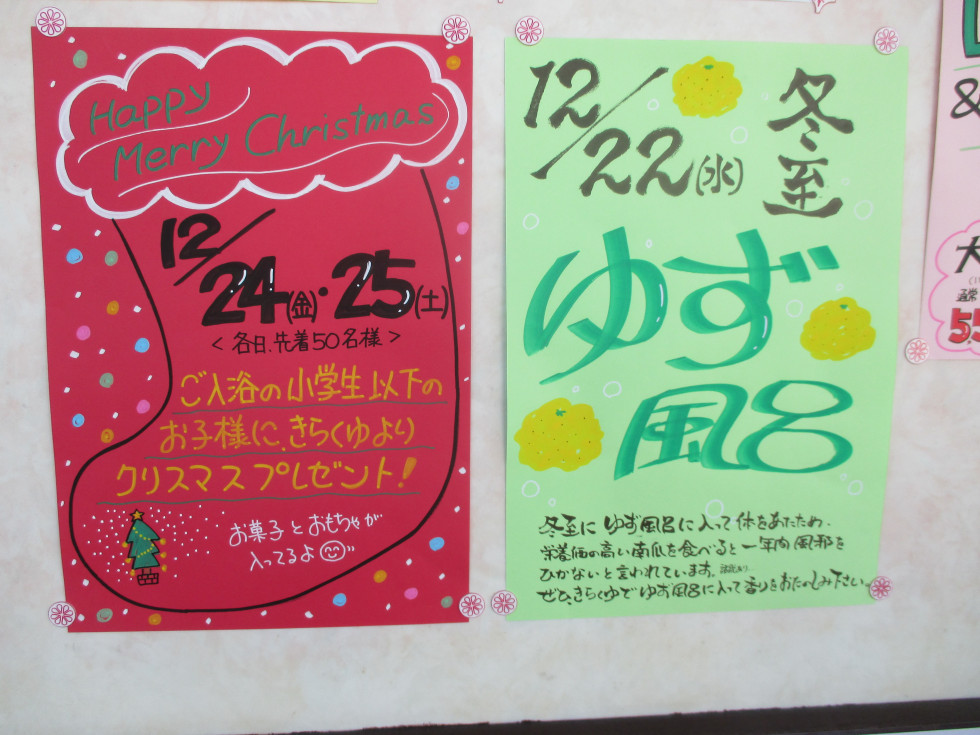 Happy
Merry Christmas
12/24(金)・25(土)
<各日、先着50名様>
ご入浴の小学生以下の
お子様に、きらくゆより
クリスマスプレゼント!
お菓子とおもちゃが
入ってるよ
12/22(水)
冬至
ゆず
風呂
冬至にゆず風呂に入って体をあたため、
栄養価の高い南瓜を食べると一年内風邪を
ひかないと言われています。
ぜひ、きらくゆでゆず風呂に入って香りをおたのしみ下さい。
&
大
通常